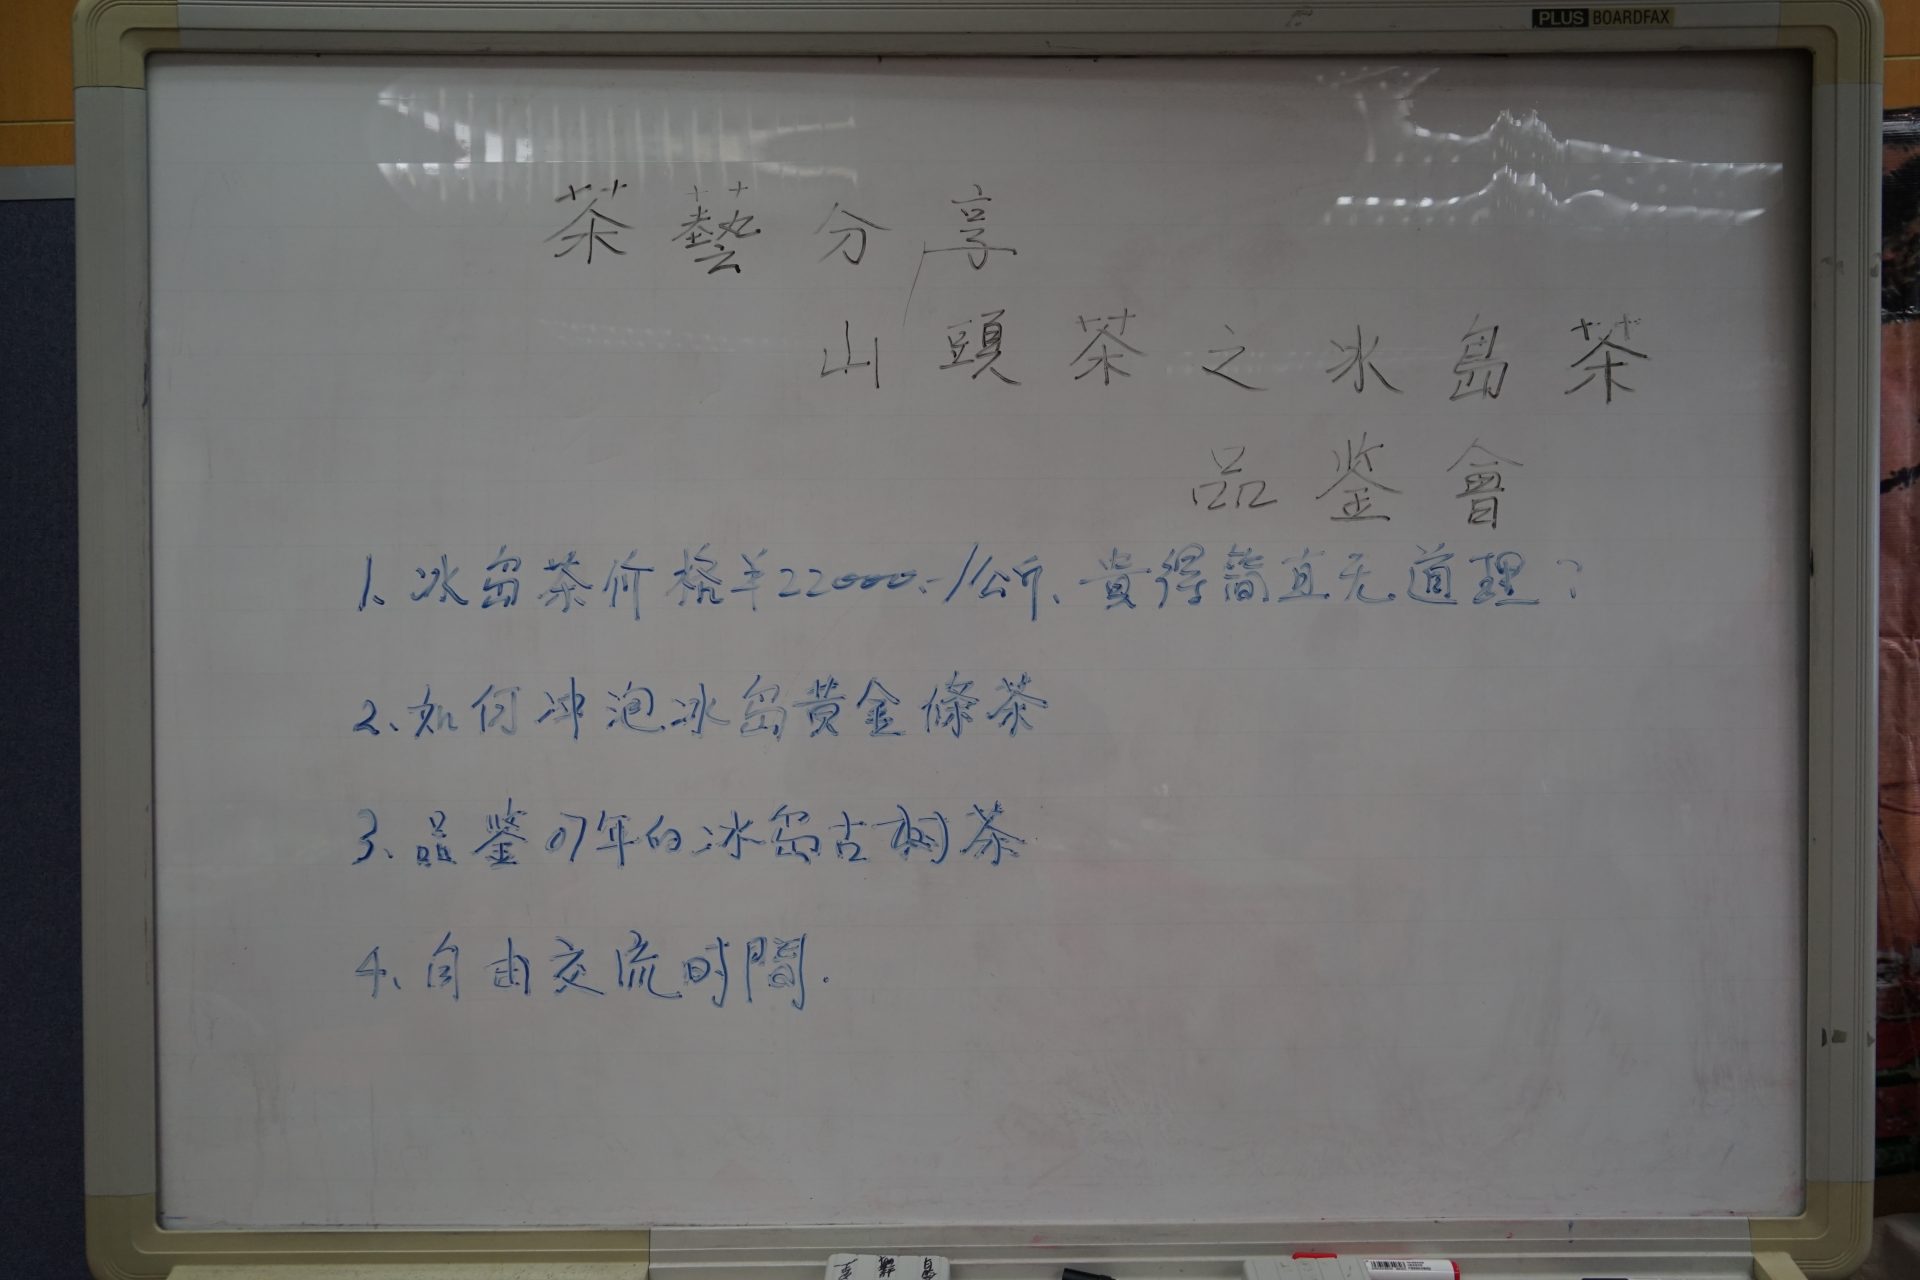 PLUS BOARDFAX
茶藝分享
山頭茶之冰島茶
品鉴會
1、冰岛茶价格羊22000.-/公斤、貴得简直无道理？
2、如何冲泡冰岛黄金條茶
3、品鉴07年的冰岛古树茶
4、自由交流時間.